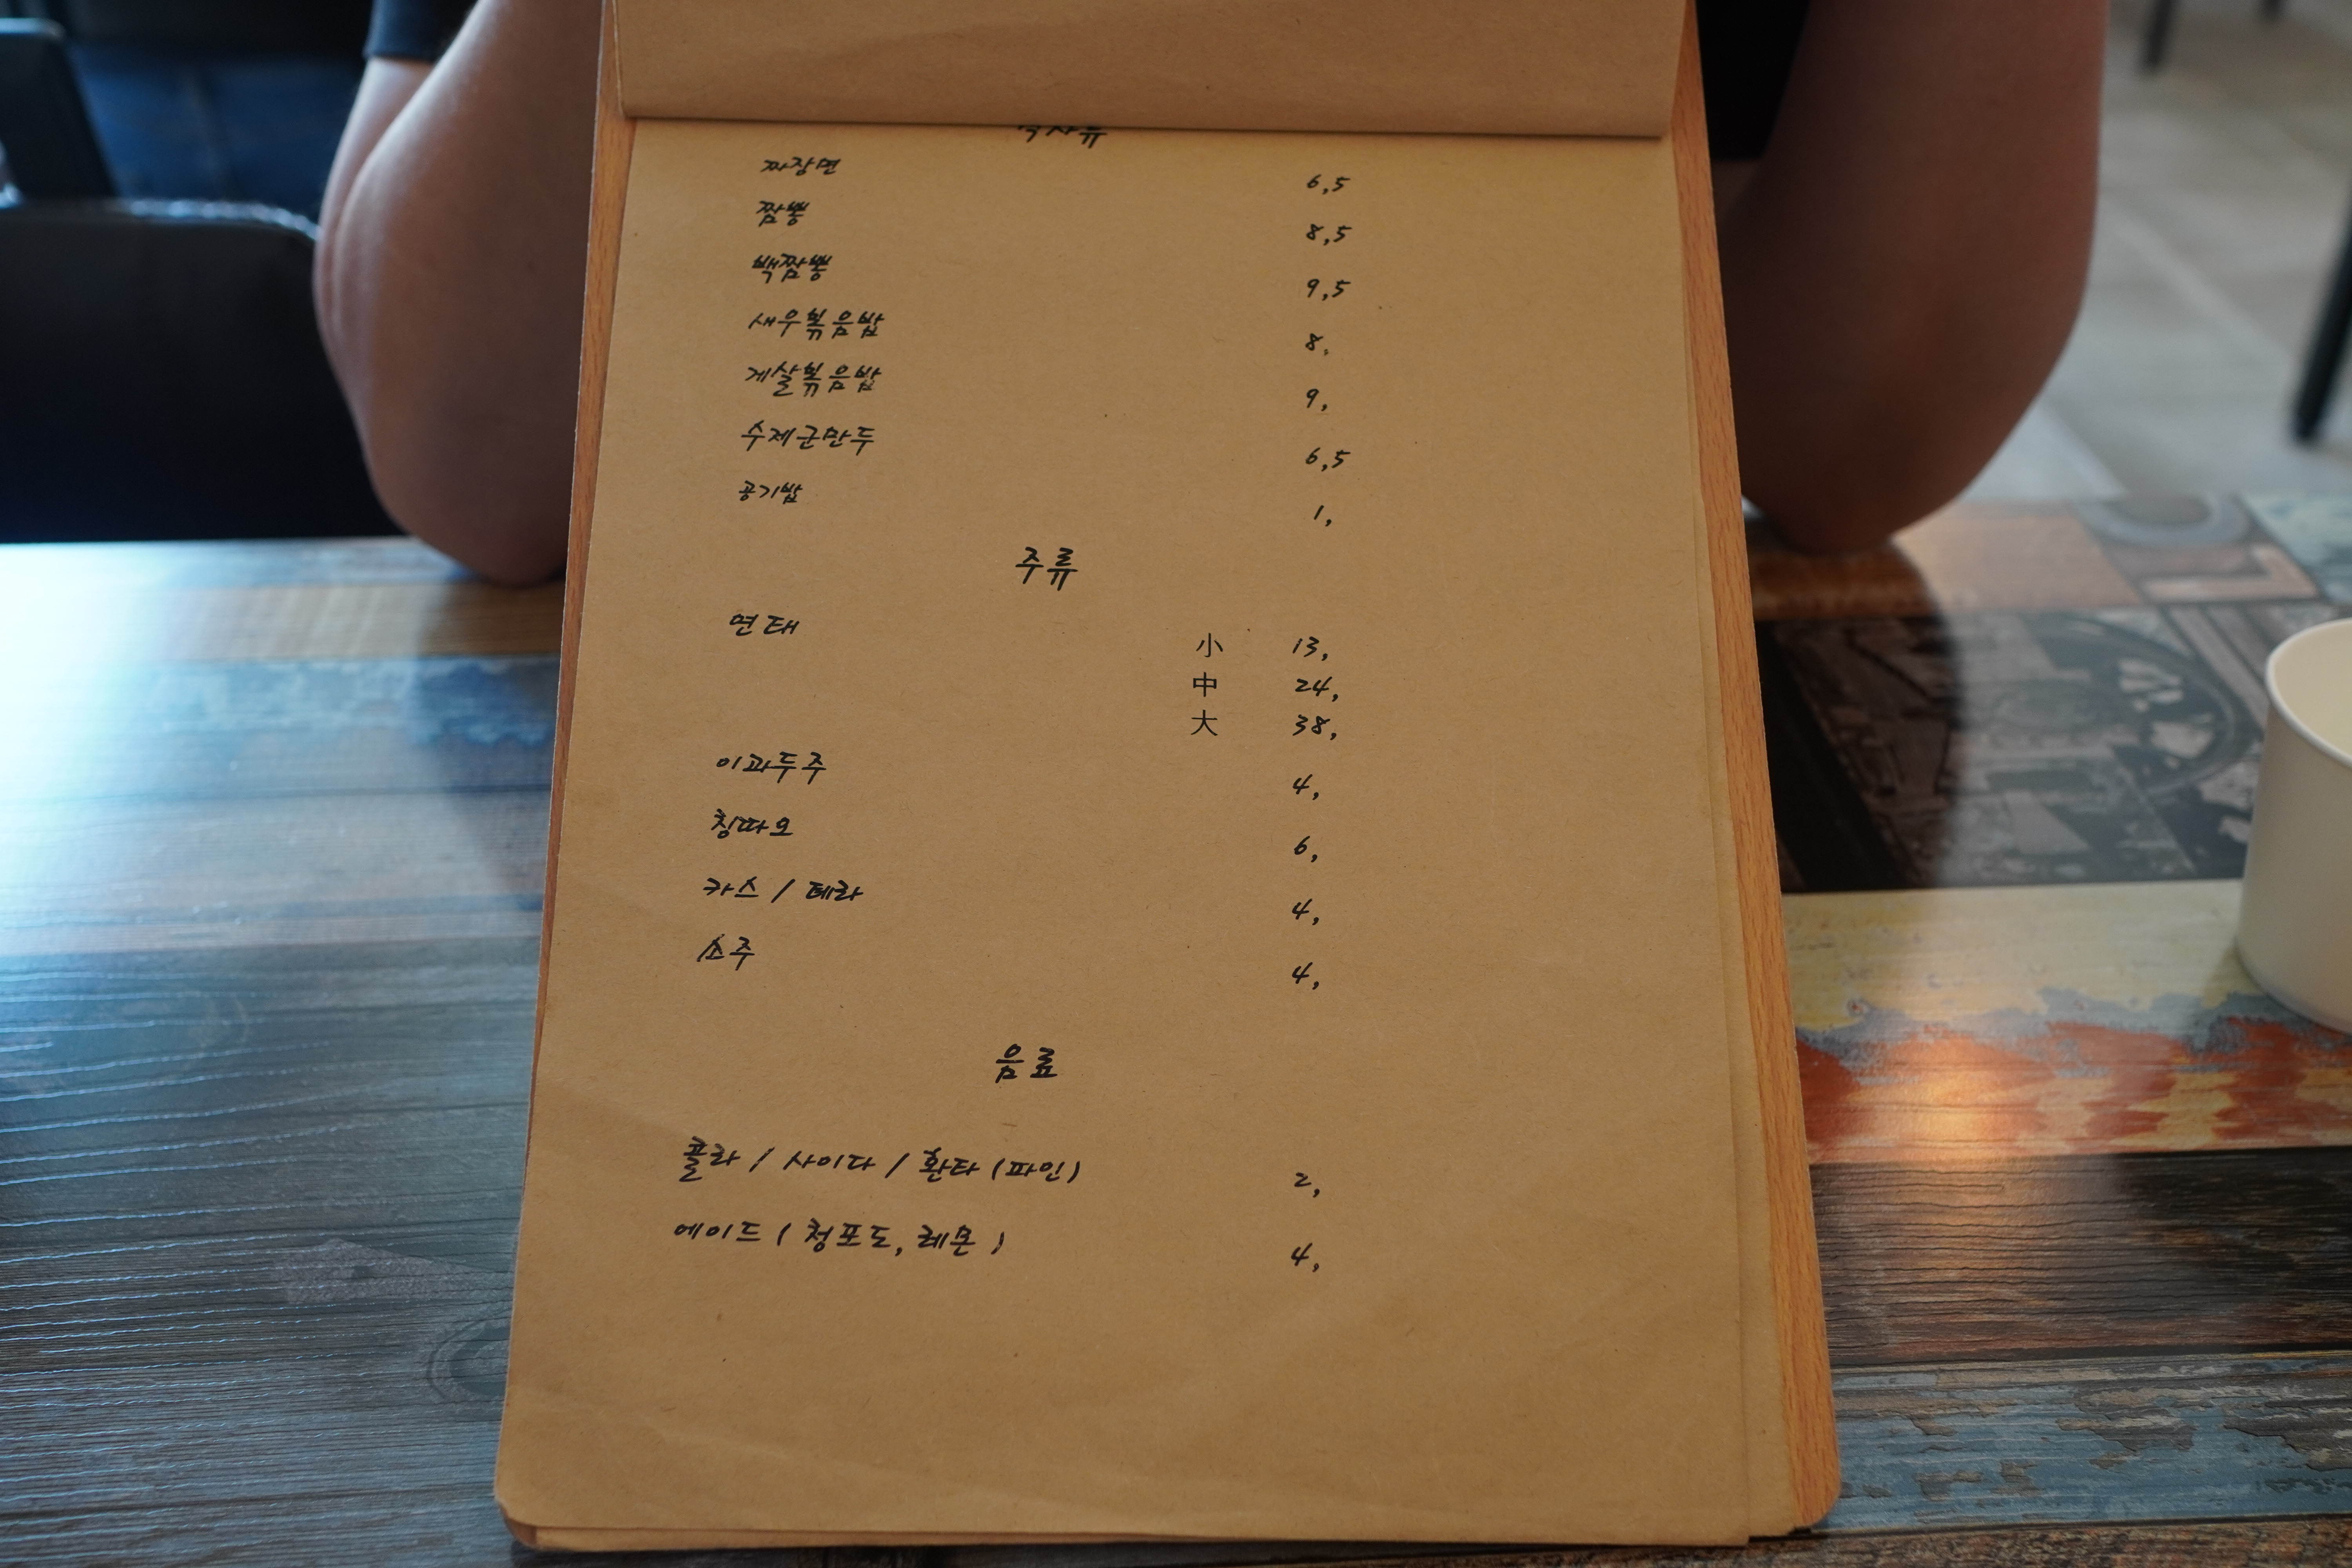 식사류
짜장면 6,5
짬뽕 8,5
백짬뽕 9,5
새우볶음밥 8,
게살볶음밥 9,
수제군만두 6,5
공기밥 1,
주류
연태 小 13,
中 24,
大 38,
이과두주 4,
칭따오 6,
카스 / 테라 4,
소주 4,
음료
콜라 / 사이다 / 환타 (파인) 2,
에이드 ( 청포도, 레몬 ) 4,